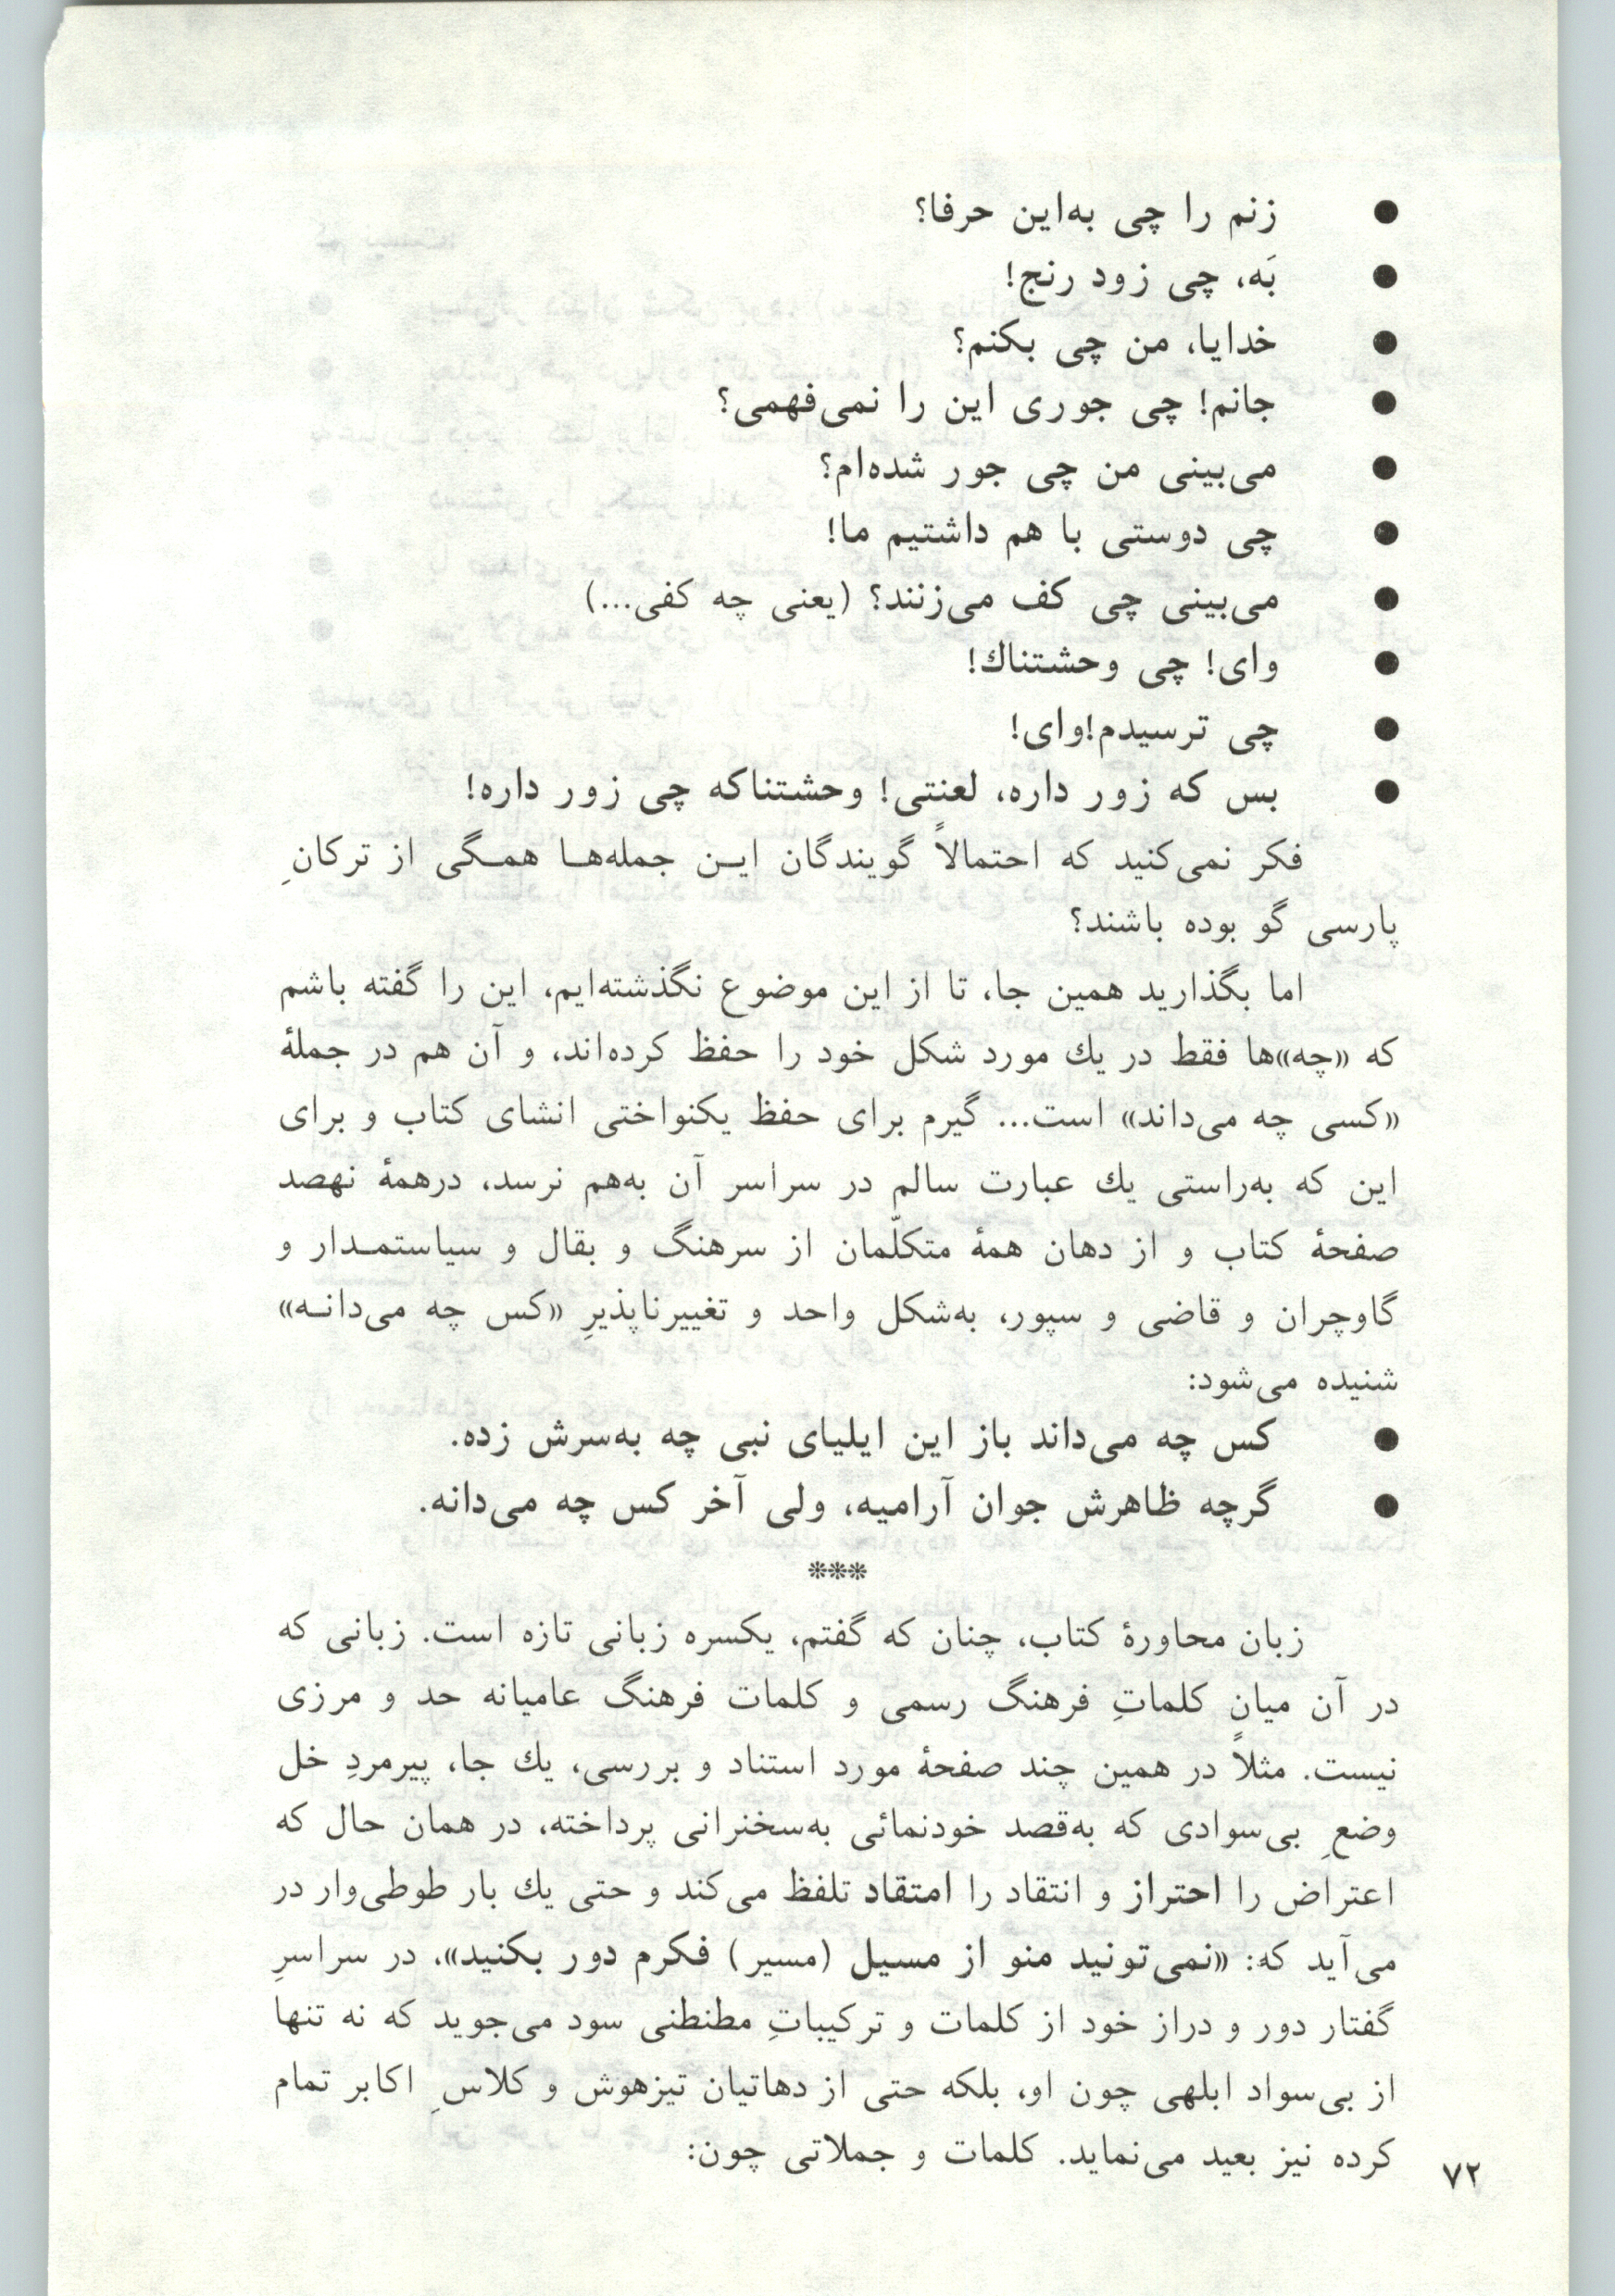 ● زنم را چی به‌این حرفا؟
● بَه، چی زود رنج!
● خدایا، من چی بکنم؟
● جانم! چی جوری این را نمی‌فهمی؟
● می‌بینی من چی جور شده‌ام؟
● چی دوستی با هم داشتیم ما!
● می‌بینی چی کف می‌زنند؟ (یعنی چه کفی...)
● وای! چی وحشتناك!
● چی ترسیدم!وای!
● بس که زور داره، لعنتی! وحشتناکه چی زور داره!
فکر نمی‌کنید که احتمالاً گویندگان این جمله‌ها همگی از ترکانِ
پارسی گو بوده باشند؟
اما بگذارید همین جا، تا از این موضوع نگذشته‌ایم، این را گفته باشم
که «چه»ها فقط در یك مورد شکل خود را حفظ کرده‌اند، و آن هم در جملهٔ
«کسی چه می‌داند» است... گیرم برای حفظ یکنواختی انشای کتاب و برای
این که به‌راستی یك عبارت سالم در سراسر آن به‌هم نرسد، درهمهٔ نهصد
صفحهٔ کتاب و از دهان همهٔ متکلّمان از سرهنگ و بقال و سیاستمدار و
گاوچران و قاضی و سپور، به‌شکل واحد و تغییرناپذیرِ «کس چه می‌دانه»
شنیده می‌شود:
● کس چه می‌داند باز این ایلیای نبی چه به‌سرش زده.
● گرچه ظاهرش جوان آرامیه، ولی آخر کس چه می‌دانه.
***
زبان محاورهٔ کتاب، چنان که گفتم، یکسره زبانی تازه است. زبانی که
در آن میان کلماتِ فرهنگ رسمی و کلمات فرهنگ عامیانه حد و مرزی
نیست. مثلاً در همین چند صفحهٔ مورد استناد و بررسی، یك جا، پیرمردِ خل
وضعِ بی‌سوادی که به‌قصد خودنمائی به‌سخنرانی پرداخته، در همان حال که
اعتراض را احتراز و انتقاد را امتقاد تلفظ می‌کند و حتی یك بار طوطی‌وار در
می‌آید که: «نمی‌تونید منو از مسیل (مسیر) فکرم دور بکنید»، در سراسرِ
گفتار دور و دراز خود از کلمات و ترکیباتِ مطنطنی سود می‌جوید که نه تنها
از بی‌سواد ابلهی چون او، بلکه حتی از دهاتیان تیزهوش و کلاسِ اکابر تمام
کرده نیز بعید می‌نماید. کلمات و جملاتی چون:
۷۲